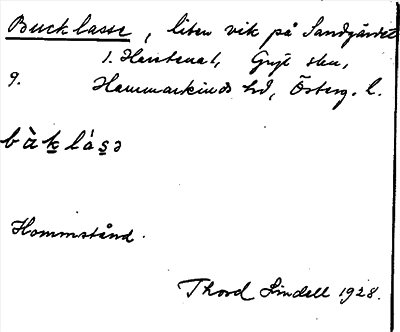 Bucklasse, liten vik på Sandgärdet
1. Hersterat, Gryt sn,
9. Hammarkinds hd, Österg. l.
bàk̲lás̲ə
Hommstånd.
Thord Lindell 1928.